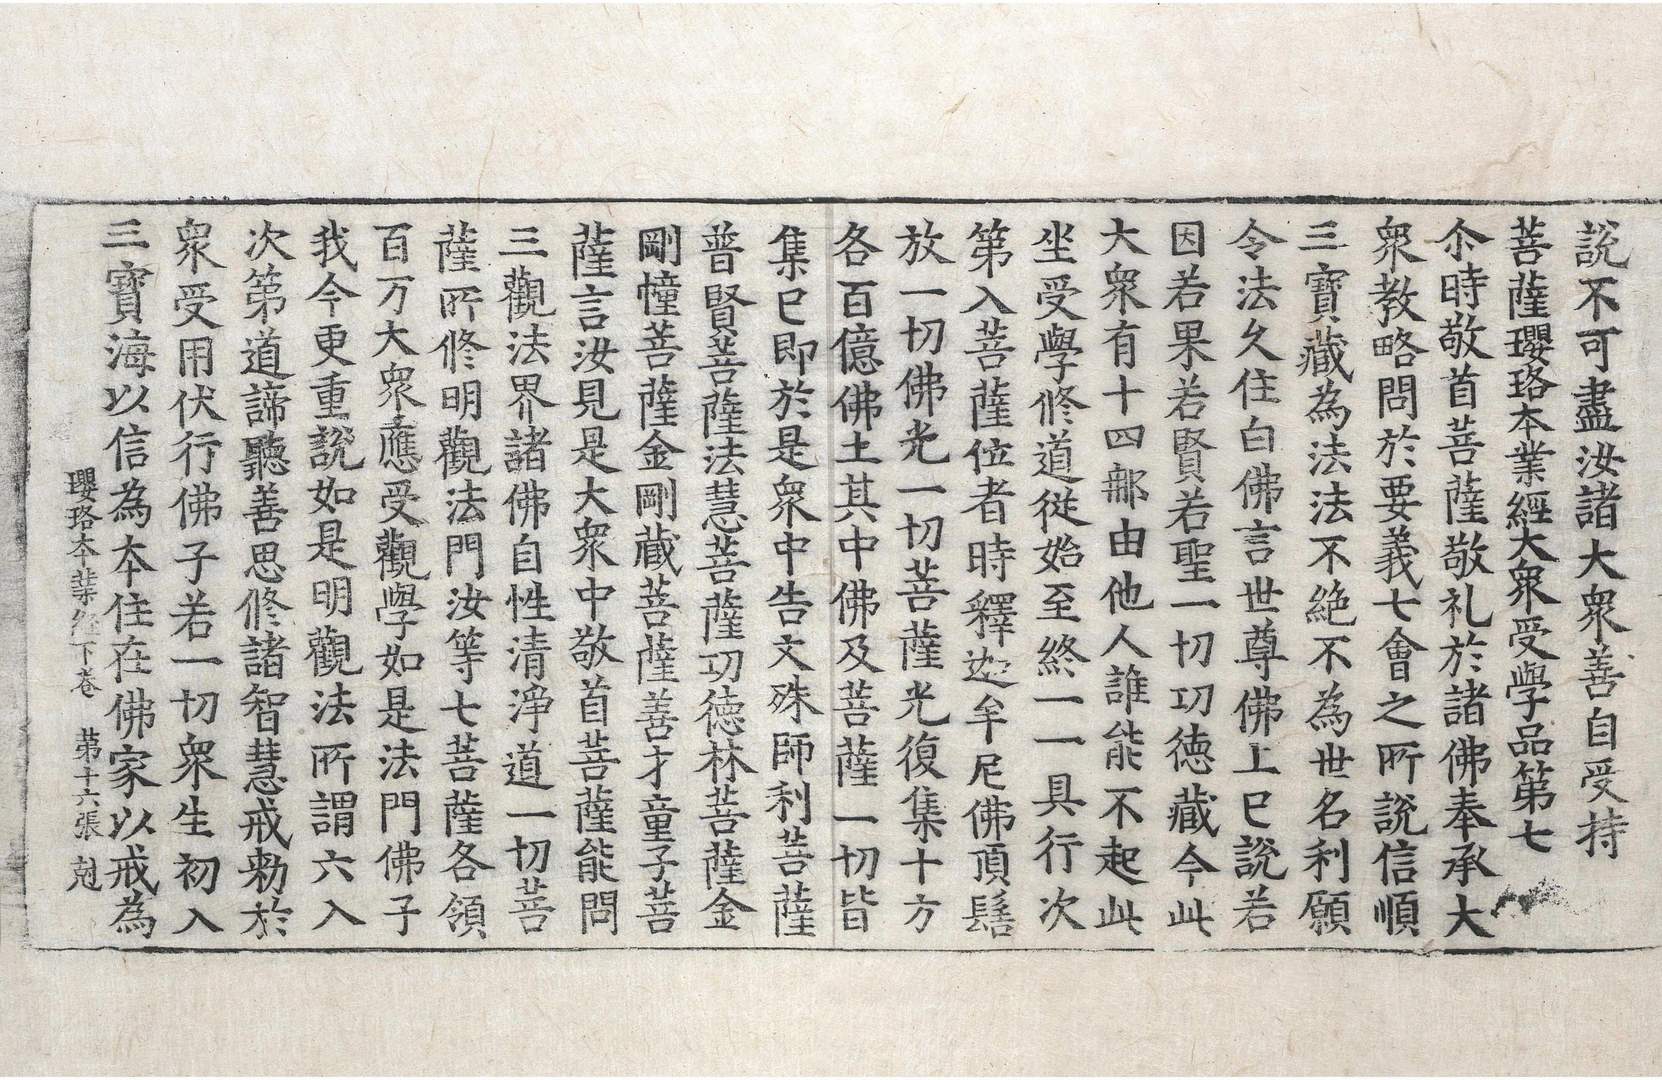 說不可盡汝諸大衆善自受持
菩薩瓔珞本業經大衆受學品第七
尒時敬首菩薩敬礼於諸佛奉承大
衆教略問於要義七會之所說信順
三寶藏為法法不絶不為世名利願
令法久住白佛言世尊佛上已說若
因若果若賢若聖一切功徳藏今此
大衆有十四那由他人誰能不起此
坐受學修道從始至終一一具行次
第入菩薩位者時釋迦牟尼佛頂髻
放一切佛光一切菩薩光復集十方
各百億佛土其中佛及菩薩一切皆
集已即於是衆中告文殊師利菩薩
普賢菩薩法慧菩薩功德林菩薩金
剛幢菩薩金剛藏菩薩善才童子菩
薩言汝見是大衆中敬首菩薩能問
三觀法界諸佛自性清淨道一切菩
薩所修明觀法門汝等七菩薩各領
百万大衆應受觀學如是法門佛子
我今更重說如是明觀法所謂六入
次第道諦聽善思修諸智慧戒勑於
衆受用伏行佛子若一切衆生初入
三寶海以信為本住在佛家以戒為
瓔珞本業經下卷 第十六張 尅